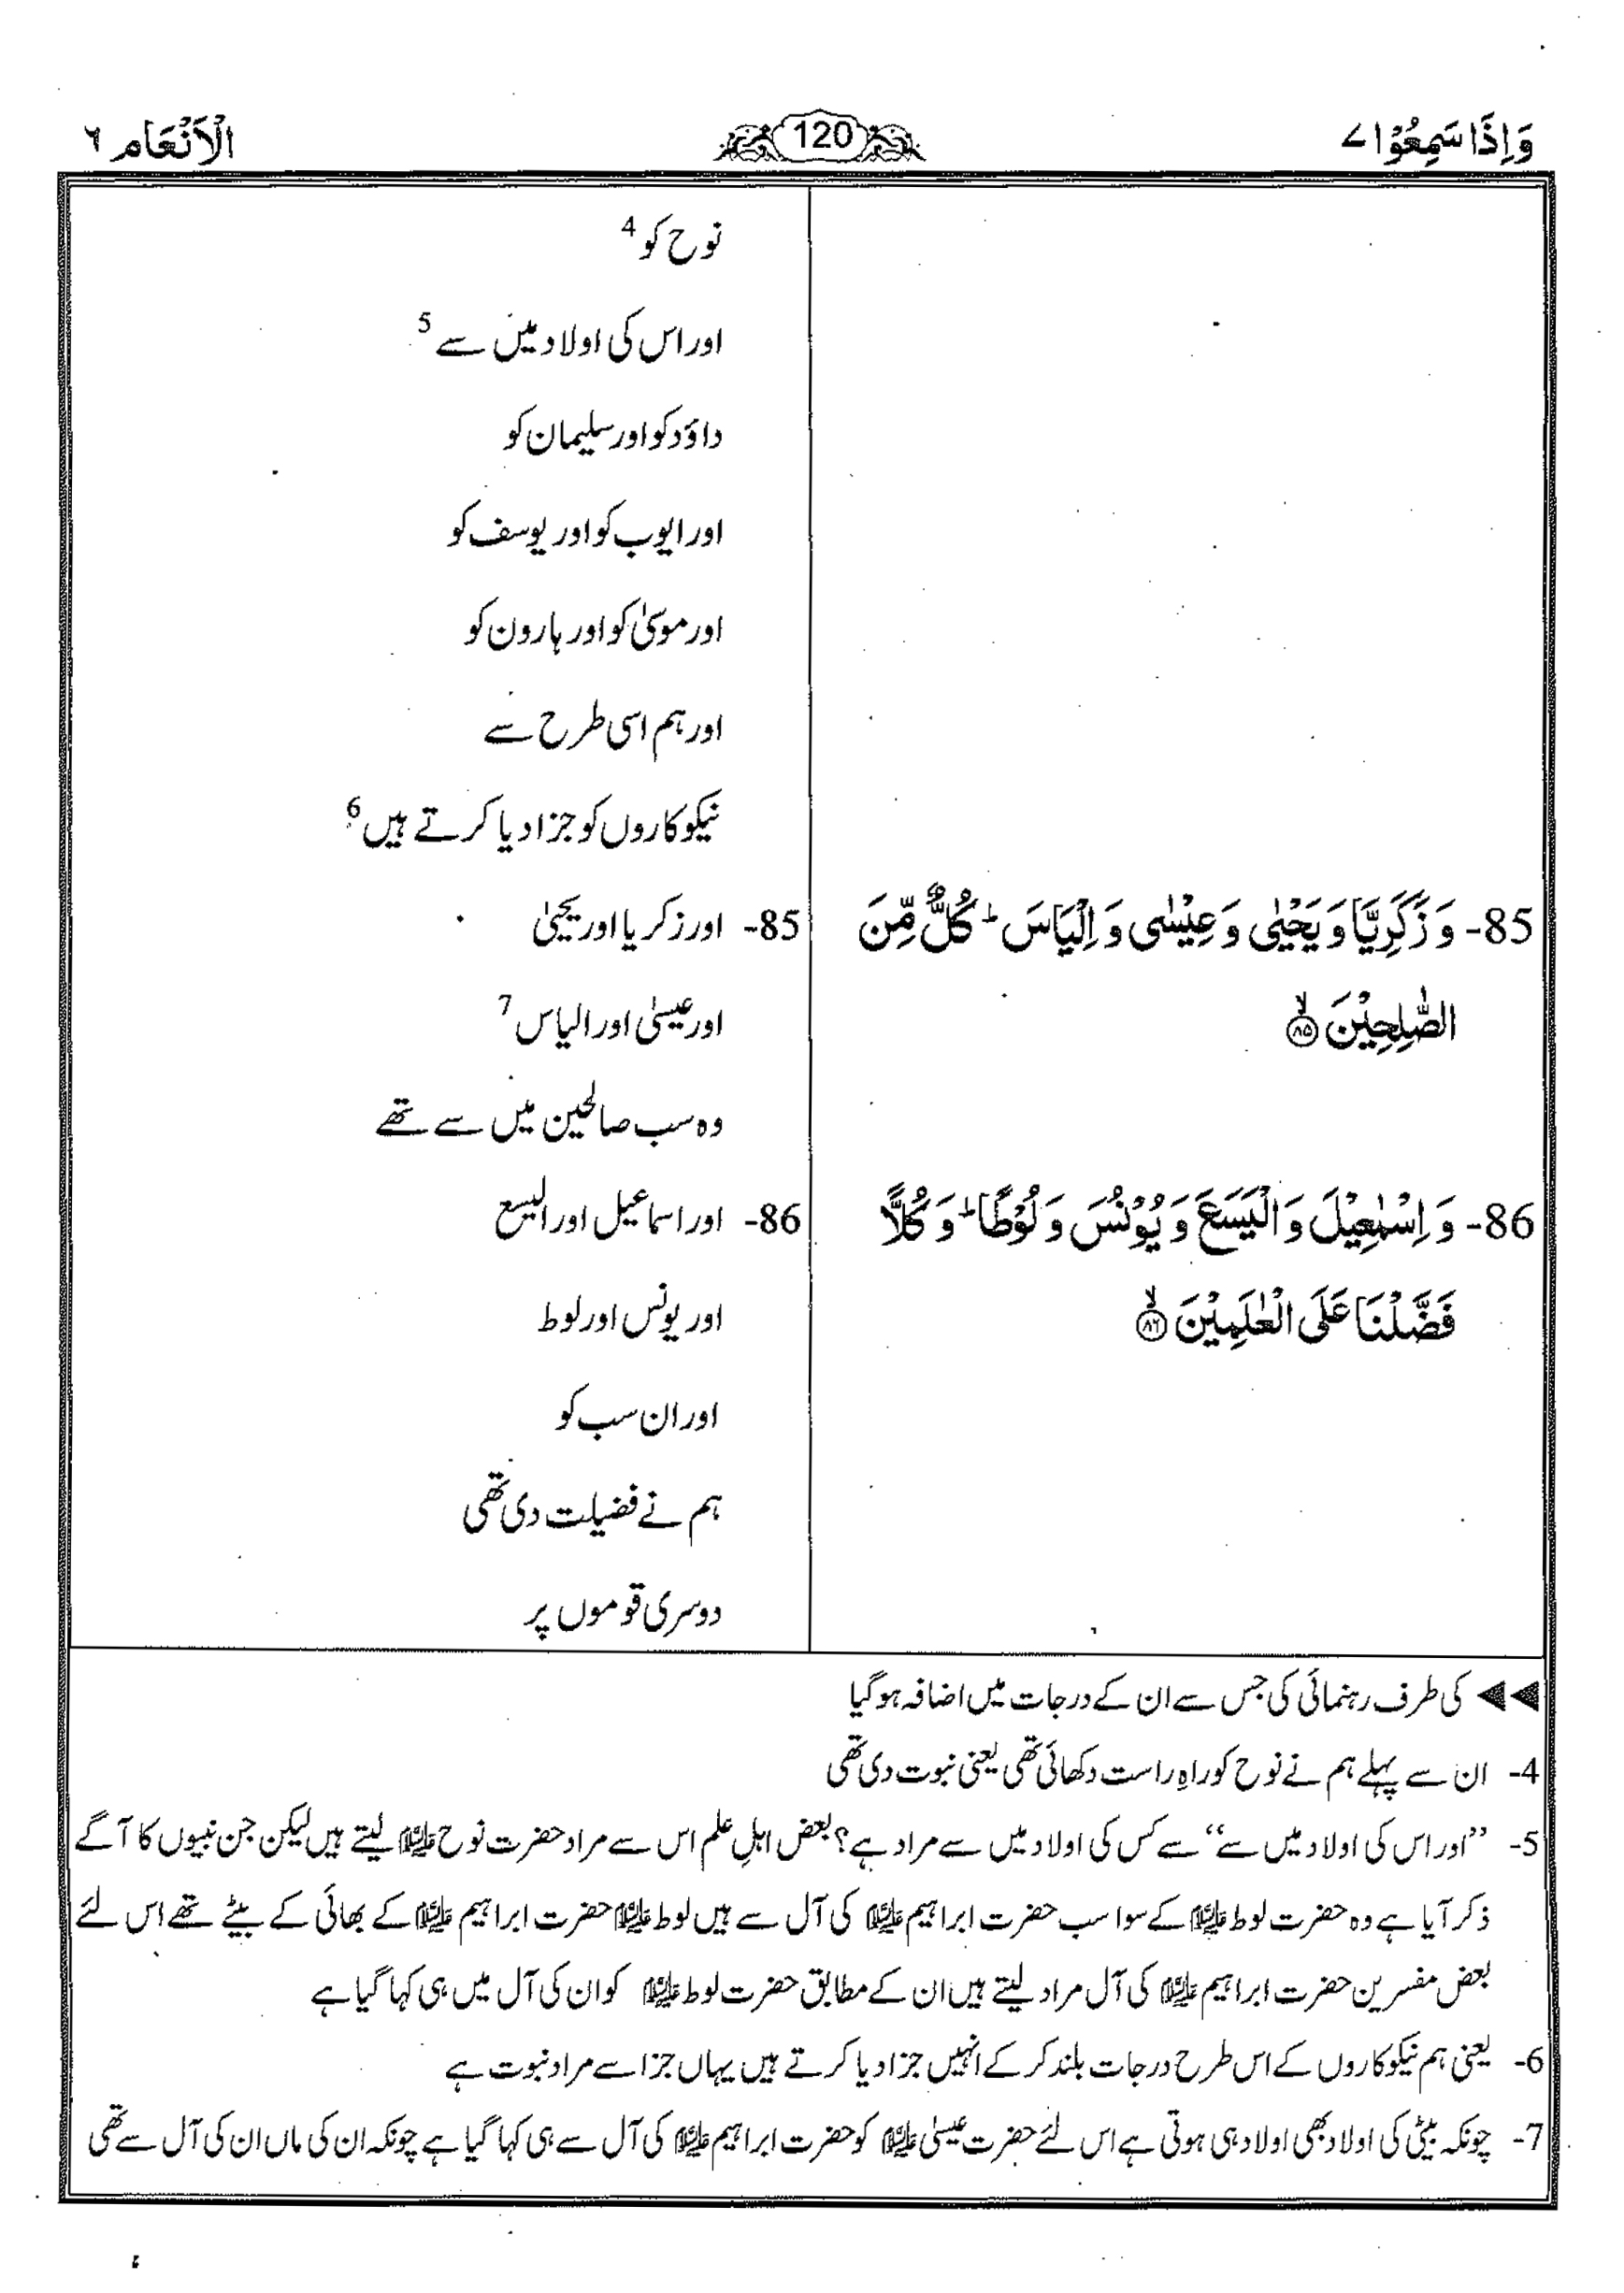 وَاِذَا سَمِعُوْا ۷
120
الْاَنْعَام ۶
نوح کو 4
اور اس کی اولاد میں سے 5
داؤد کو اور سلیمان کو
اور ایوب کو اور یوسف کو
اور موسیٰ کو اور ہارون کو
اور ہم اسی طرح سے
نیکو کاروں کو جزا دیا کرتے ہیں 6
85- وَ زَكَرِيَّا وَ يَحْيٰى وَ عِيْسٰى وَ اِلْيَاسَ ؕ كُلٌّ مِّنَ
الصّٰلِحِيْنَ ۙ﴿۸۵﴾
85- اور زکریا اور یحییٰ
اور عیسیٰ اور الیاس 7
وہ سب صالحین میں سے تھے
86- وَ اِسْمٰعِيْلَ وَ الْيَسَعَ وَ يُوْنُسَ وَ لُوْطًا ؕ وَ كُلًّا
فَضَّلْنَا عَلَى الْعٰلَمِيْنَ ۙ﴿۸۶﴾
86- اور اسماعیل اور الیسع
اور یونس اور لوط
اور ان سب کو
ہم نے فضیلت دی تھی
دوسری قوموں پر
◄◄ کی طرف رہنمائی کی جس سے ان کے درجات میں اضافہ ہو گیا
4- ان سے پہلے ہم نے نوح کو راہِ راست دکھائی تھی یعنی نبوت دی تھی
5- ’’اور اس کی اولاد میں سے‘‘ سے کس کی اولاد میں سے مراد ہے؟ بعض اہلِ علم اس سے مراد حضرت نوح علیہ السلام لیتے ہیں لیکن جن نبیوں کا آگے
ذکر آیا ہے وہ حضرت لوط علیہ السلام کے سوا سب حضرت ابراہیم علیہ السلام کی آل سے ہیں لوط علیہ السلام حضرت ابراہیم علیہ السلام کے بھائی کے بیٹے تھے اس لئے
بعض مفسرین حضرت ابراہیم علیہ السلام کی آل مراد لیتے ہیں ان کے مطابق حضرت لوط علیہ السلام کو ان کی آل میں ہی کہا گیا ہے
6- یعنی ہم نیکو کاروں کے اس طرح درجات بلند کر کے انہیں جزا دیا کرتے ہیں یہاں جزا سے مراد نبوت ہے
7- چونکہ بیٹی کی اولاد بھی اولاد ہی ہوتی ہے اس لئے حضرت عیسیٰ علیہ السلام کو حضرت ابراہیم علیہ السلام کی آل سے ہی کہا گیا ہے چونکہ ان کی ماں ان کی آل سے تھی